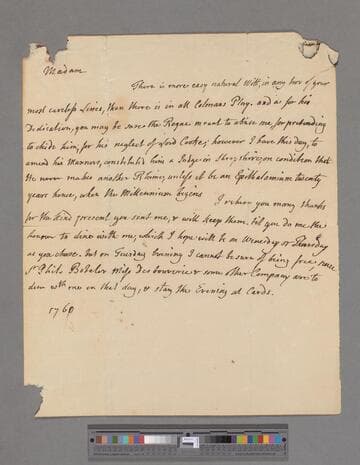 Madam
There is more easy natural Witt, in any two of your
most careless Lines, then there is in all Colmans Play. and as for his
Dedication, you may be sure the Rogue meant to abuse me, for pretending
to chide him, for his neglect of Lord Cooke; however I have this day, to
amend his Manners, constituted him a Judge in Shropshire, on condition that
He never makes another Rhime, unless it be an Epithalamium twenty
years hence, when the Millennium begins
I return you many thanks
for the kind present you sent me, & will keep them till you do me the
honour to dine with me, which I hope will be on Wensday or Thursday
as you chuse. but on Tuesday Evening I cannot be sure of being free, since
Sr Phil. Miss Des bouverie & some other Company are to
dine with me on that day, & stay the Evening at Cards.
1760